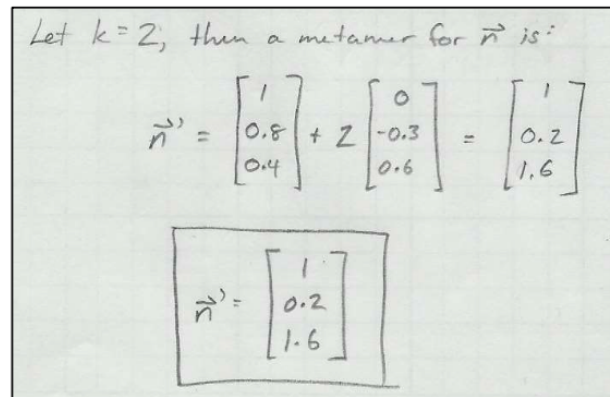 Let k = 2, then a metamer for n⃗ is:
n⃗' = [1 0.8 0.4] + 2 [0 -0.3 0.6] = [1 0.2 1.6]
n⃗' = [1 0.2 1.6]